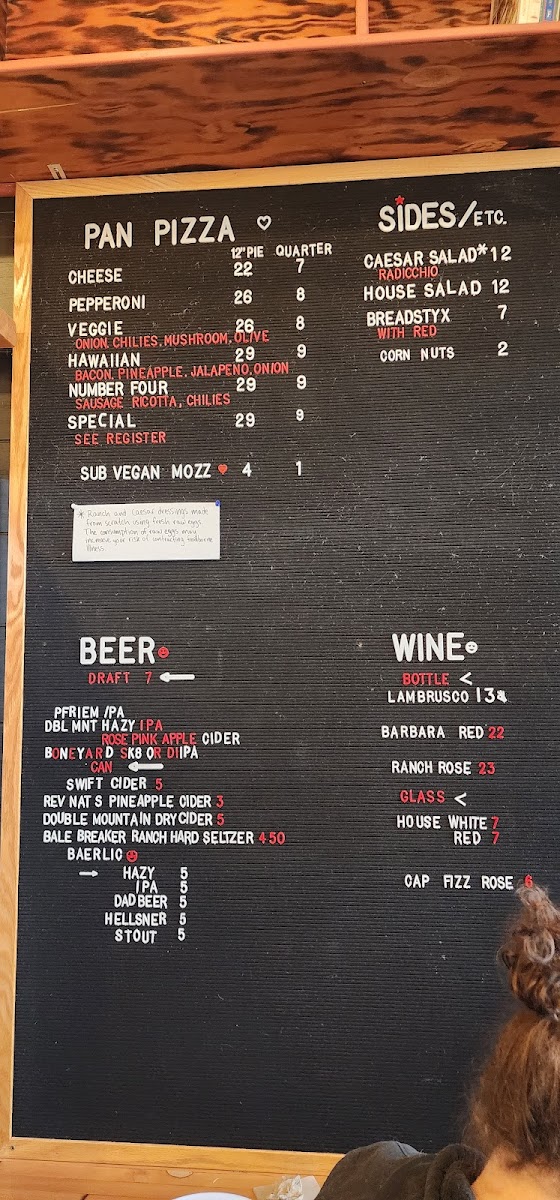 PAN PIZZA
12" PIE QUARTER
CHEESE 22 7
PEPPERONI 26 8
VEGGIE 26 8
ONION, CHILIES, MUSHROOM, OLIVE
HAWAIIAN 29 9
BACON, PINEAPPLE, JALAPENO, ONION
NUMBER FOUR 29 9
SAUSAGE RICOTTA, CHILIES
SPECIAL 29 9
SEE REGISTER
SUB VEGAN MOZZ 4 1
* Ranch and Caesar dressings made
from scratch using fresh raw eggs.
The consumption of raw eggs may
increase your risk of contracting foodborne
illness.
SIDES/ETC.
CAESAR SALAD* 12
RADICCHIO
HOUSE SALAD 12
BREADSTYX 7
WITH RED
CORN NUTS 2
BEER
DRAFT 7
PFRIEM IPA
DBL MNT HAZY IPA
ROSE PINK APPLE CIDER
BONEYARD SK8 OR DIIPA
CAN
SWIFT CIDER 5
REV NAT S PINEAPPLE CIDER 3
DOUBLE MOUNTAIN DRY CIDER 5
BALE BREAKER RANCH HARD SELTZER 4 50
BAERLIC
HAZY 5
IPA 5
DAD BEER 5
HELLSNER 5
STOUT 5
WINE
BOTTLE <
LAMBRUSCO
BARBARA RED 22
RANCH ROSE 23
GLASS <
HOUSE WHITE 7
RED 7
CAP FIZZ ROSE 6